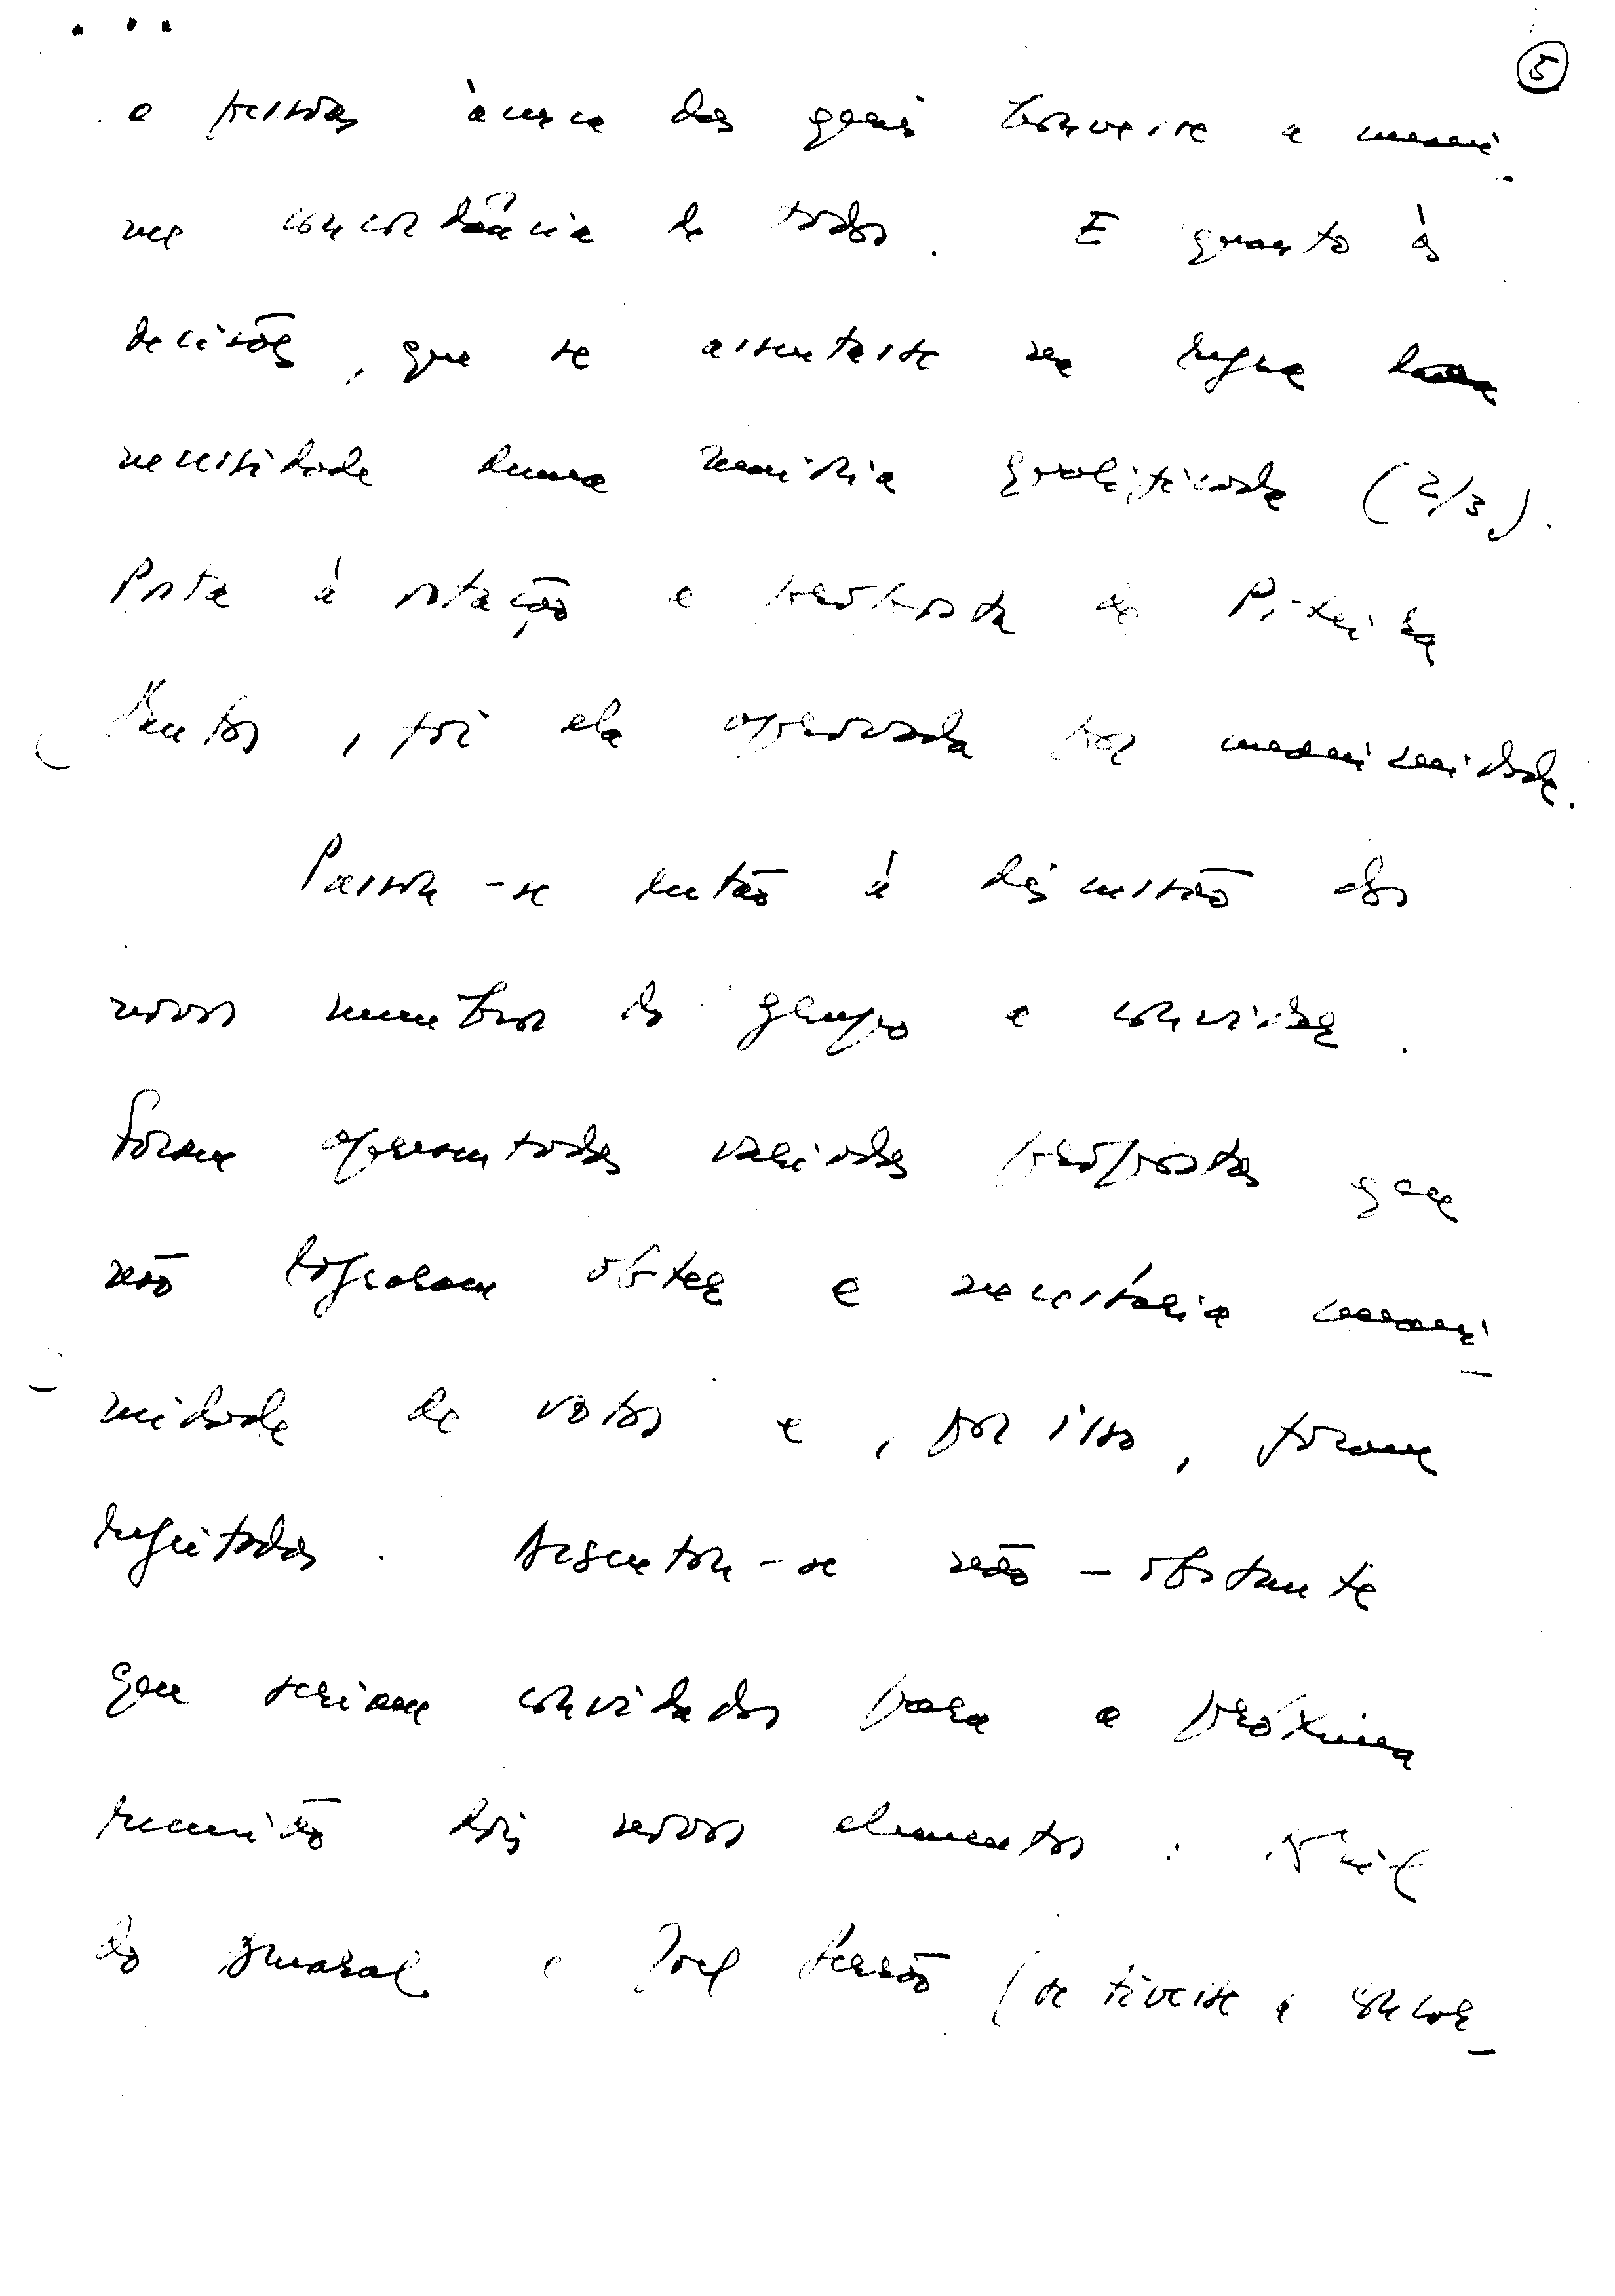 ...
5
a pessoas àcerca das quais houvesse a unani-
me concordância de todos. E quanto às
decisões, que se assentasse na regra da
necessidade duma maioria qualificada (2/3).
Posta à votação a proposta de Piteira
Santos, foi ela aprovada por unanimidade.
Passou-se então à discussão dos
novos membros do grupo a convidar.
Foram apresentadas variadas propostas que
não lograram obter a necessária unani-
midade de votos e, por isso, foram
rejeitadas. Assentou-se não-obstante
que seriam convidados para a próxima
reunião dois novos elementos:
do Amaral e Joel Serrão (se tivesse a concor-